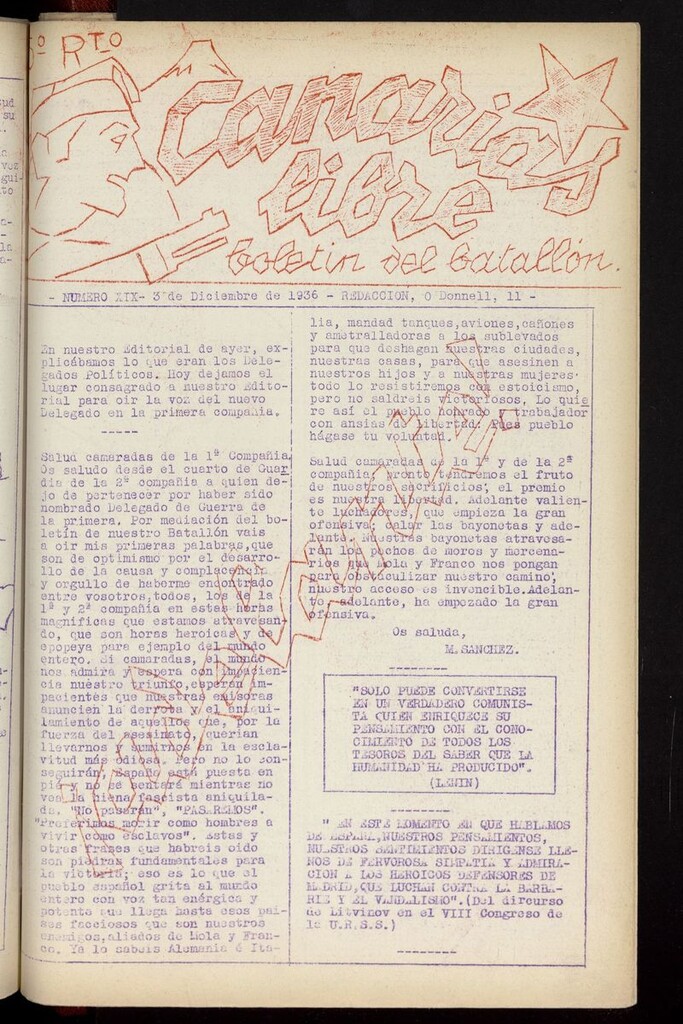 5º RTO
Canarias
libre
boletin del batallón.
- NUMERO XIX- 3 de Diciembre de 1936 - REDACCION, O Donnell, 11 -
En nuestro Editorial de ayer, ex-
plicábamos lo que eran los Dele-
gados Políticos. Hoy dejamos el
lugar consagrado a nuestro Edito-
rial para oir la voz del nuevo
Delegado en la primera compañia.
-----
Salud camaradas de la 1ª Compañia
Os saludo desde el cuarto de Guar
dia de la 2ª compañia a quien de-
jo de pertenecer por haber sido
nombrado Delegado de Guerra de
la primera. Por mediación del bo-
letín de nuestro Batallón vais
a oir mis primeras palabras,que
son de optimismo por el desarro-
llo de la causa y complacencia
y orgullo de haberme encontrado
entre vosotros,todos, los de la
1ª y 2ª compañia en estas horas
magníficas que estamos atravesan-
do, que son horas heroicas y de
epopeya para ejemplo del mundo
entero. Si camaradas, el mundo
nos admira y espera con impacien-
cia nuestro triunfo,esperan im-
pacientes que nuestras emisoras
anuncien la derrota y el aniqui-
lamiento de aquellos que, por la
fuerza del asesinato, querían
llevarnos y sumirnos en la escla-
vitud más odiosa. Pero no lo con-
seguirán, España está puesta en
pié y no se sentará mientras no
vea la hiena fascista aniquila-
da. "No pasarán", "PASAREMOS".
"Preferimos morir como hombres a
vivir como esclavos". Estas y
otras frases que habreis oido
son piedras fundamentales para
la victoria; eso es lo que el
pueblo español grita al mundo
entero con voz tan enérgica y
potente que llega hasta esos pai-
ses facciosos que son nuestros
enemigos,aliados de Mola y Fran-
co. Ya lo sabeis Alemania é Ita-
lia, mandad tanques,aviones,cañones
y ametralladoras a los sublevados
para que deshagan nuestras ciudades,
nuestras casas, para que asesinen a
nuestros hijos y a nuestras mujeres
todo lo resistiremos con estoicismo,
pero no saldreis victoriosos. Lo quie
re así el pueblo honrado y trabajador
con ansias de libertad. Pues pueblo
hágase tu voluntad.
Salud camaradas de la 1ª y de la 2ª
compañia, pronto tendremos el fruto
de nuestros sacrificios, el premio
es nuestra libertad. Adelante valien-
te luchadores, que empieza la gran
ofensiva; calar las bayonetas y ade-
lante. Nuestras bayonetas atravesa-
rán los pechos de moros y mercena-
rios que Mola y Franco nos pongan
para obstaculizar nuestro camino,
nuestro acceso es invencible.Adelan-
te, adelante, ha empezado la gran
ofensiva.
Os saluda,
M.SANCHEZ.
--------
"SOLO PUEDE CONVERTIRSE
EN UN VERDADERO COMUNIS-
TA QUIEN ENRIQUECE SU
PENSAMIENTO CON EL CONO-
CIMIENTO DE TODOS LOS
TESOROS DEL SABER QUE LA
HUMANIDAD HA PRODUCIDO".
(LENIN)
--------
" EN ESTE MOMENTO EN QUE HABLAMOS
DE ESPAÑA,NUESTROS PENSAMIENTOS,
NUESTROS SENTIMIENTOS DIRIGENSE LLE-
NOS DE FERVOROSA SIMPATIA Y ADMIRA-
CION A LOS HEROICOS DEFENSORES DE
MADRID,QUE LUCHAN CONTRA LA BARBA-
RIE Y EL VANDALISMO".(Del dircurso
de Litvinov en el VIII Congreso de
la U.R.S.S.)
--------